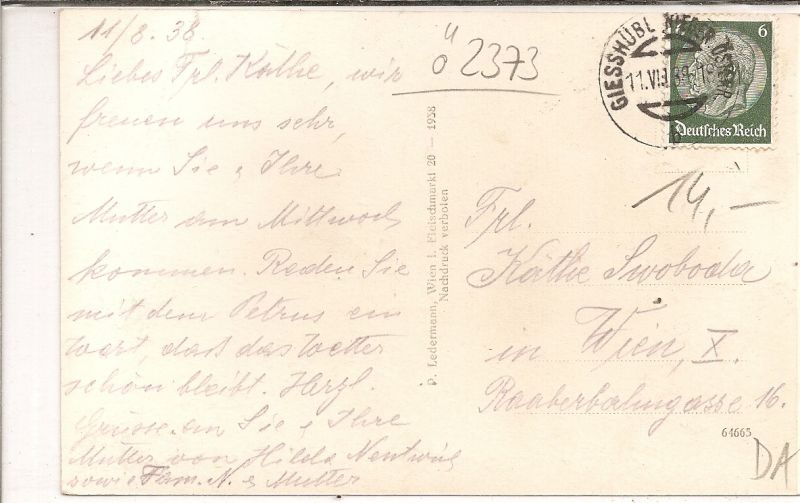 11/8. 38.
Liebes Frl. Käthe, wir
freuen uns sehr,
wenn Sie & Ihre
Mutter am Mittwoch
kommen. Reden Sie
mit dem Petrus ein
Wort, dass das Wetter
schön bleibt. Herzl.
Grüsse an Sie & Ihre
Mutter von Hilda
sowie Fam. N. & Mutter
Ü
ö 2373
P. Ledermann, Wien I. Fleischmarkt 20 — 1938
Nachdruck verboten
GIESSHÜBL
11.VIII.38
b
6
Deutsches Reich
14,—
Frl.
Käthe Swoboda
in Wien, X.
Raaberbahngasse 16.
64665
DA